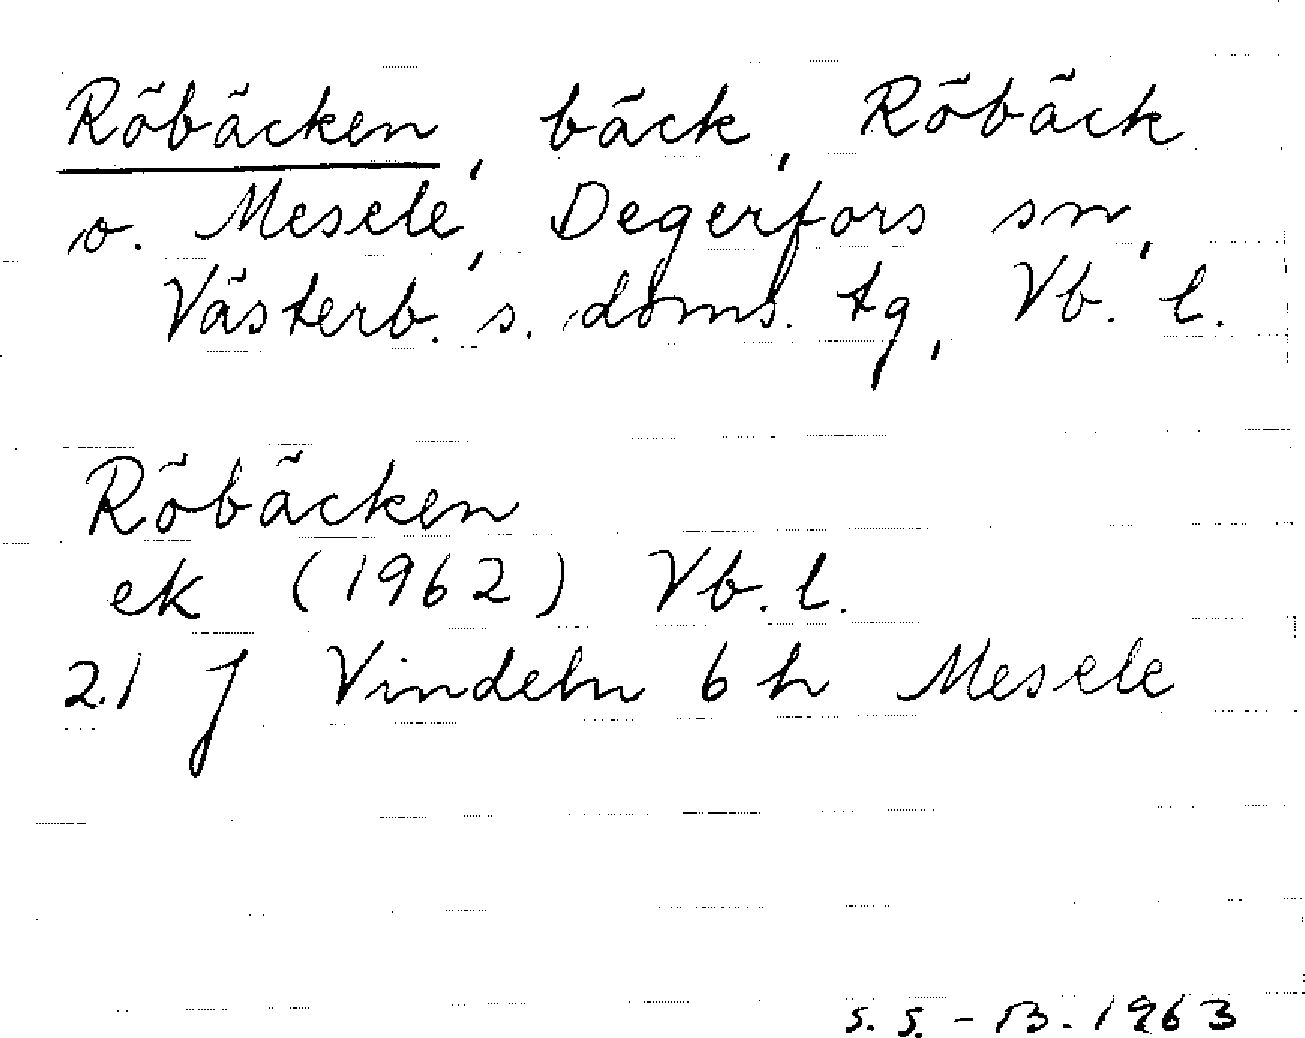 Röbäcken, bäck, Röbäck
o. Mesele, Degerfors sn,
Västerb. s. doms. tg, Vb. l.
Röbäcken
ek (1962) Vb. l.
21 J Vindeln 6 h Mesele
S. S. - B. 1963